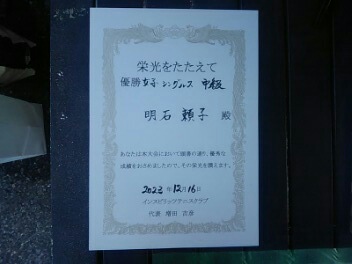 栄光をたたえて
優勝 女子 シングルス 中級
明石 頼子 殿
あなたは本大会において頭書の通り、優秀な
成績をおさめましたので、その栄光を讃えます。
2023年12月16日
インスピリッツテニスクラブ
代表 増田 吉彦